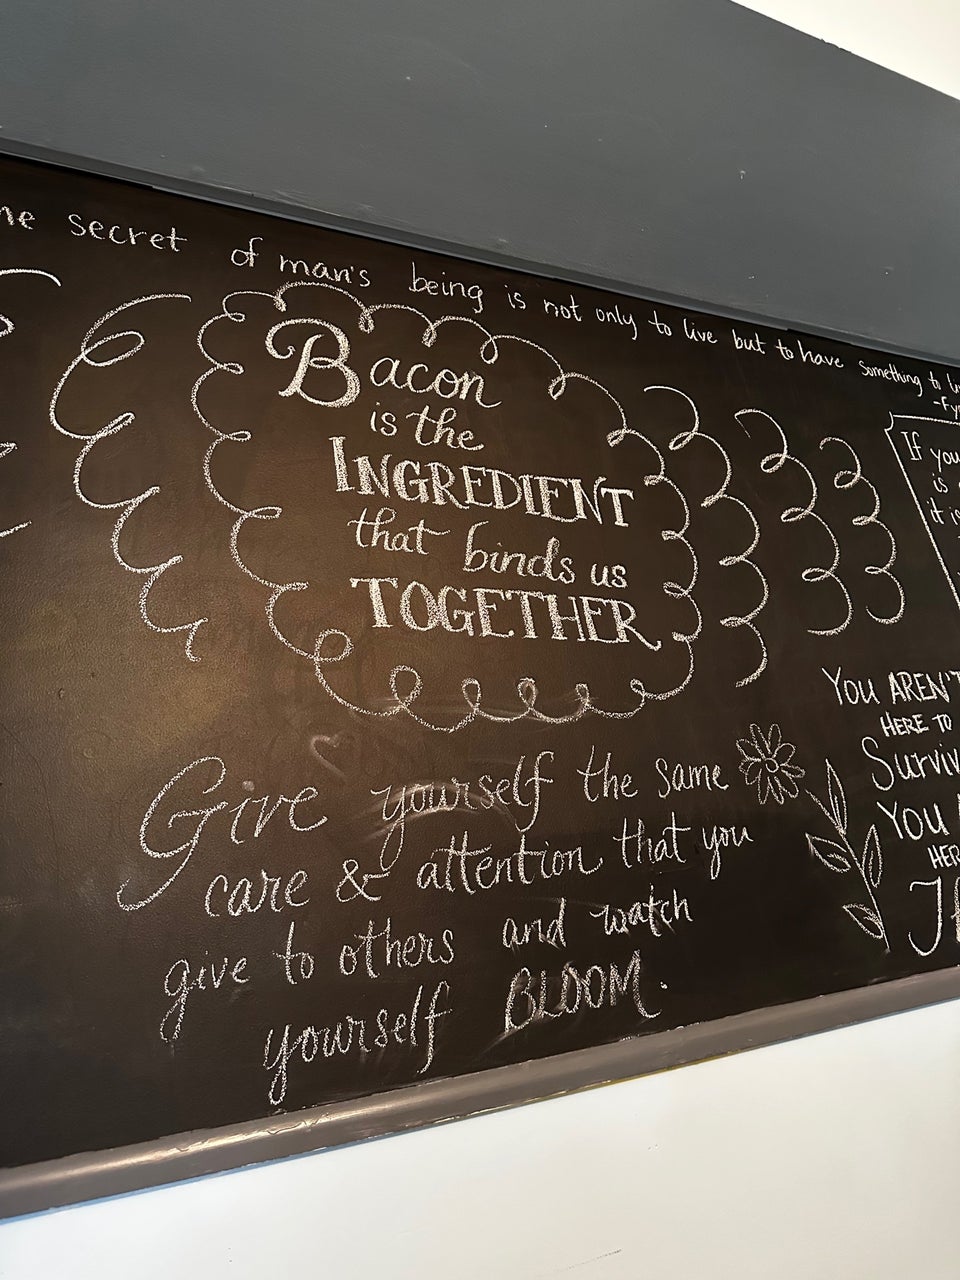 secret of man's being is not only to live but to have something to
Bacon
is the
INGREDIENT
that binds us
TOGETHER
Give yourself the same
care & attention that you
give to others and watch
yourself BLOOM.
If you
is
it is
YOU AREN'T
HERE TO
Surviv
YOU
HER